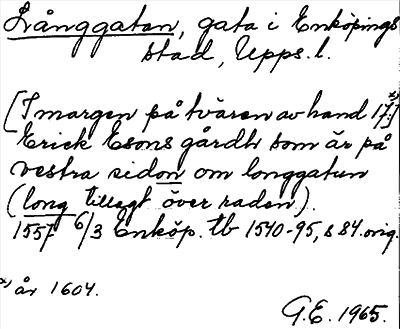 Långgatan, gata i Enköpings
stad, Upps. l.
[I margen på tvären av hand 17:]ˣ⁾
Erick Esons gårdh som är på
vestra sidon om longgatun
(long tillagt över raden).
1557 6/3 Enköp. tb 1540-95, s 84. orig.
ˣ⁾ år 1604.
G.E. 1965.